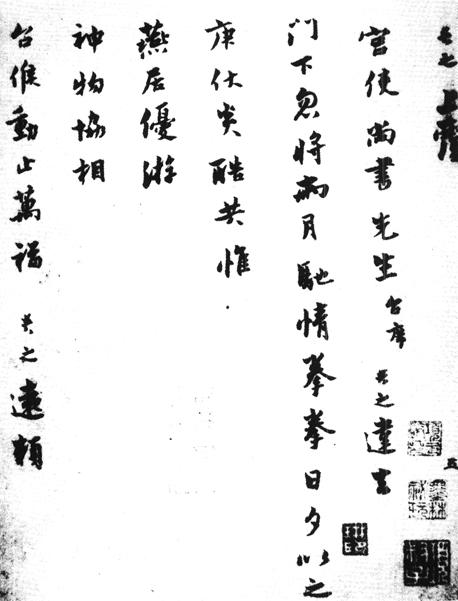 共之上覆
宫使尚書先生台席 共之違去
門下忽將兩月馳情拳拳日夕以之
庚伏炎酷共惟
燕居優游
神物協相
台候動止萬福 共之遠賴
五